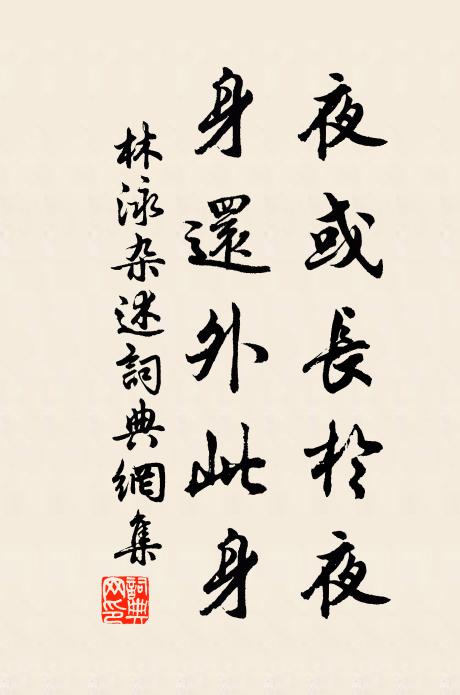 夜或長於夜
身還外此身
林泳杂述詞典網集
詞典